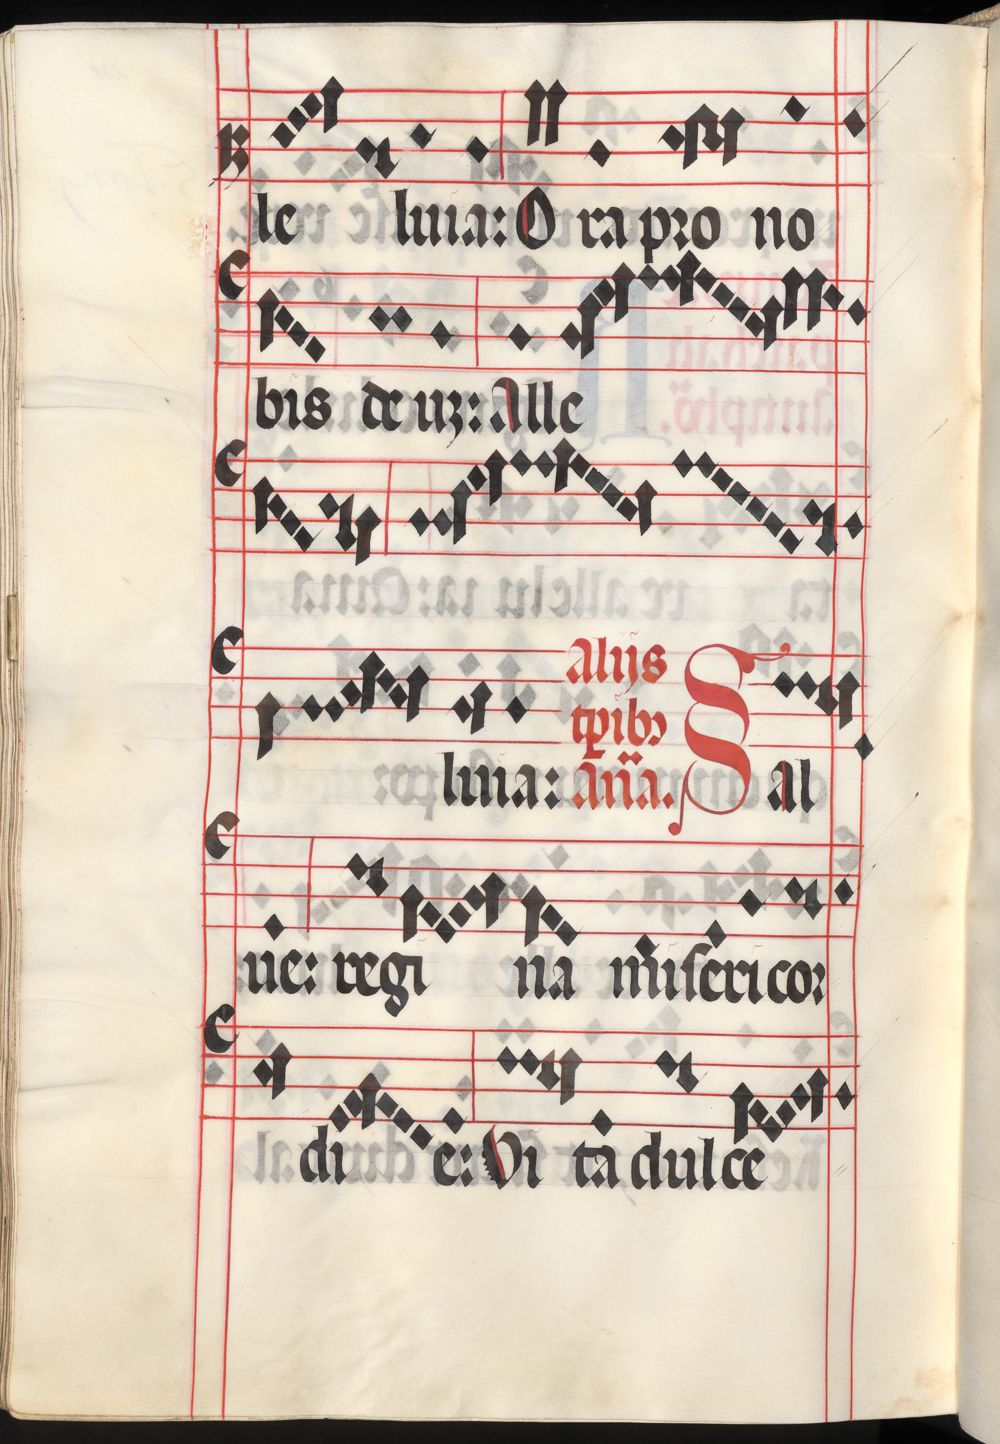 le luia: O ra pro no
bis deuz: Alle
alijs
tpibꝫ
luia: an̄a. Sal
ue: regi na mīsericor
di e: Vi ta dulce